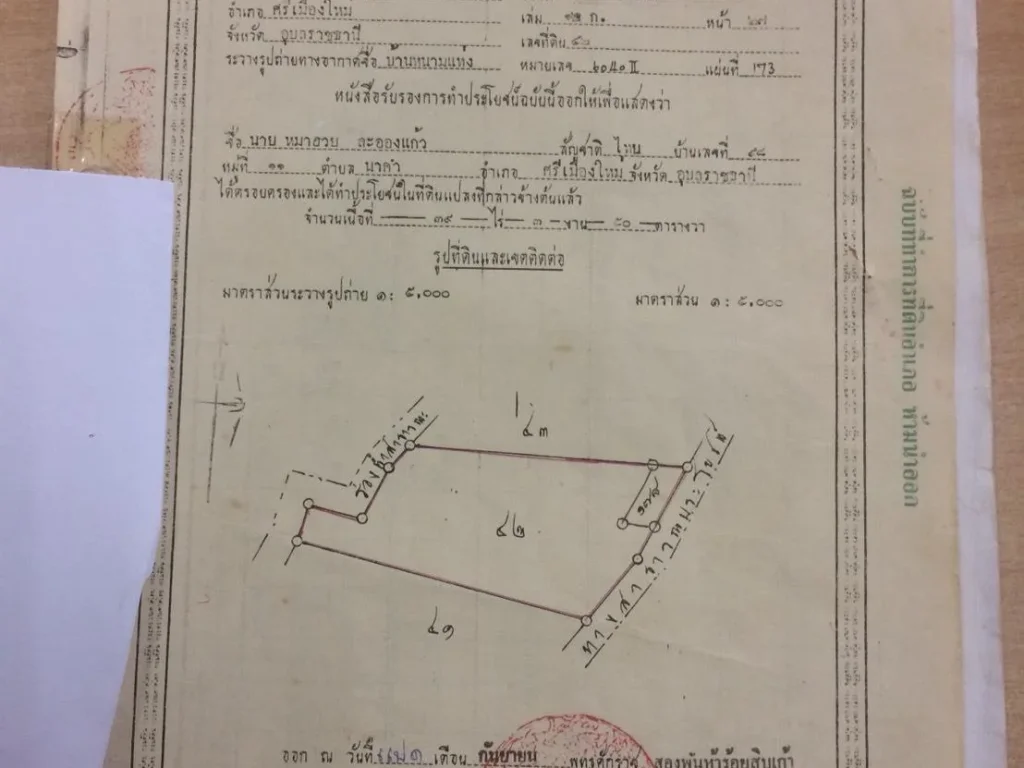 อำเภอ ศรีเมืองใหม่ เล่ม ๑๒ ก. หน้า ๒๗
จังหวัด อุบลราชธานี เลขที่ดิน
ระวางรูปถ่ายทางอากาศชื่อ บ้านหนามแท่ง หมายเลข ๖๐๔๐ II แผ่นที่ 173
หนังสือรับรองการทำประโยชน์ฉบับนี้ออกให้เพื่อแสดงว่า
ชื่อ นาย ละอองแก้ว สัญชาติ ไทย บ้านเลขที่ ๙๘
หมู่ที่ ๑๑ ตำบล นาคำ อำเภอ ศรีเมืองใหม่ จังหวัด อุบลราชธานี
ได้ครอบครองและได้ทำประโยชน์ในที่ดินแปลงที่กล่าวข้างต้นแล้ว
จำนวนเนื้อที่ ๓๙ ไร่ ๓ งาน ๕๐ ตารางวา
รูปที่ดินและเขตติดต่อ
มาตราส่วนระวางรูปถ่าย ๑ : ๕,๐๐๐ มาตราส่วน ๑ : ๕,๐๐๐
น
๔๓
ร่องน้ำสาธารณะ
๔๒
ทางสาธารณประโยชน์
๔๑
ออก ณ วันที่ เดือน กันยายน พุทธศักราช สองพันห้าร้อยสิบเก้า
ฉบับที่ทำการที่ดินอำเภอ ห้ามนำออก